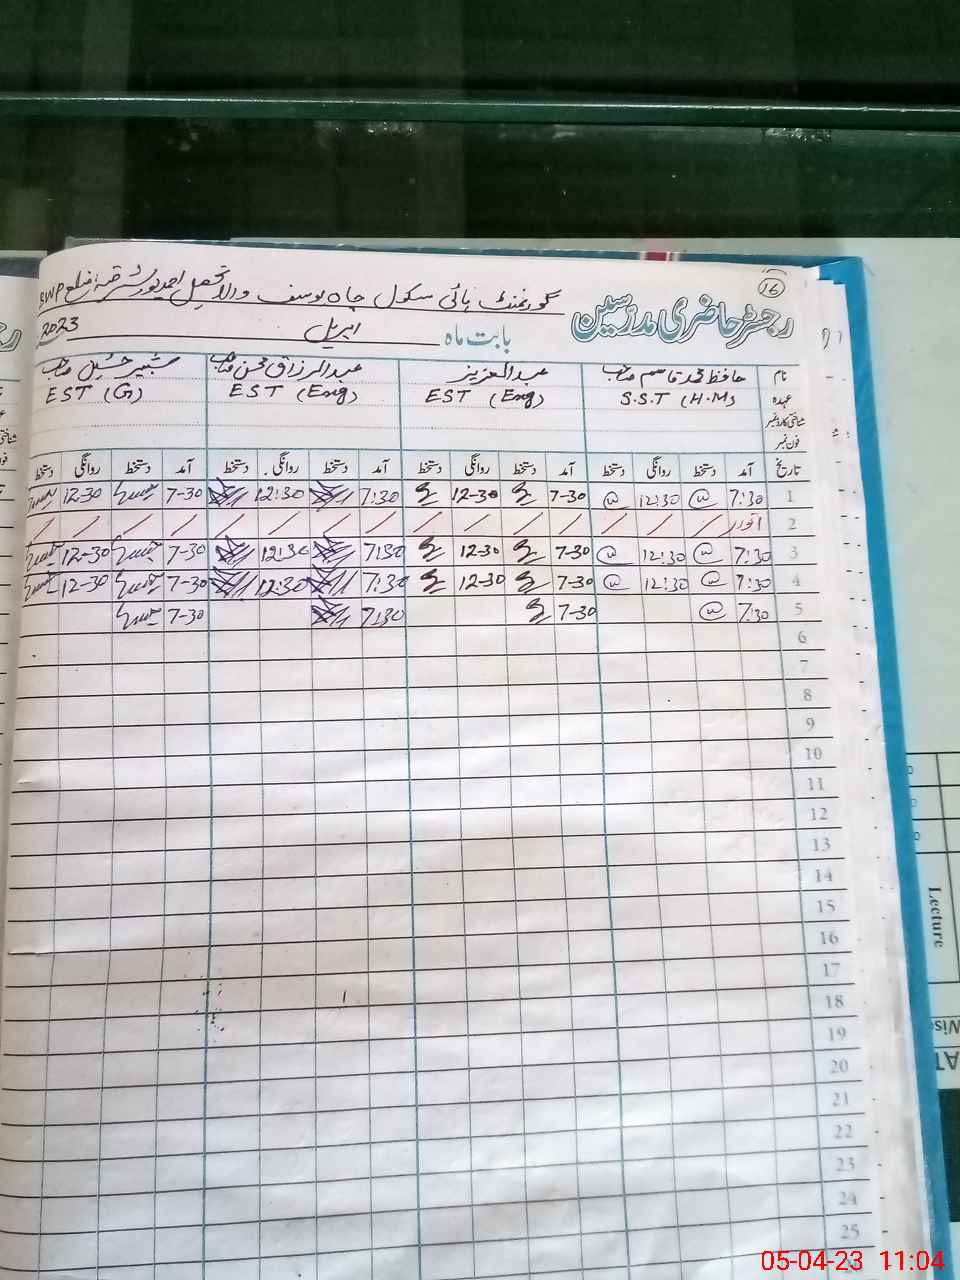 16
گورنمنٹ ہائی سکول چاہ یوسف والا تحصیل احمد پور شرقیہ ضلع BWP
رجسٹر حاضری مدرسین
بابت ماہ اپریل 2023
نام حافظ محمد قاسم صاحب عبدالعزیز عبدالرزاق محسن صاحب شبیر حسین صاحب
عہدہ S.S.T (H.M) EST (Eng) EST (Eng) EST (G)
شناختی کارڈ نمبر
فون نمبر
تاریخ آمد دستخط روانگی دستخط آمد دستخط روانگی دستخط آمد دستخط روانگی دستخط آمد دستخط روانگی دستخط
1 7:30 12:30 7-30 12-30 7:30 12:30 7-30 12-30
2 اتوار
3 7:30 12:30 7-30 12-30 7:30 12:30 7-30 12-30
4 7:30 12:30 7-30 12-30 7:30 12:30 7-30 12-30
5 7:30 7-30 7:30 7-30
6
7
8
9
10
11
12
13
14
15
16
17
18
19
20
21
22
23
24
25
Lecture
05-04-23 11:04